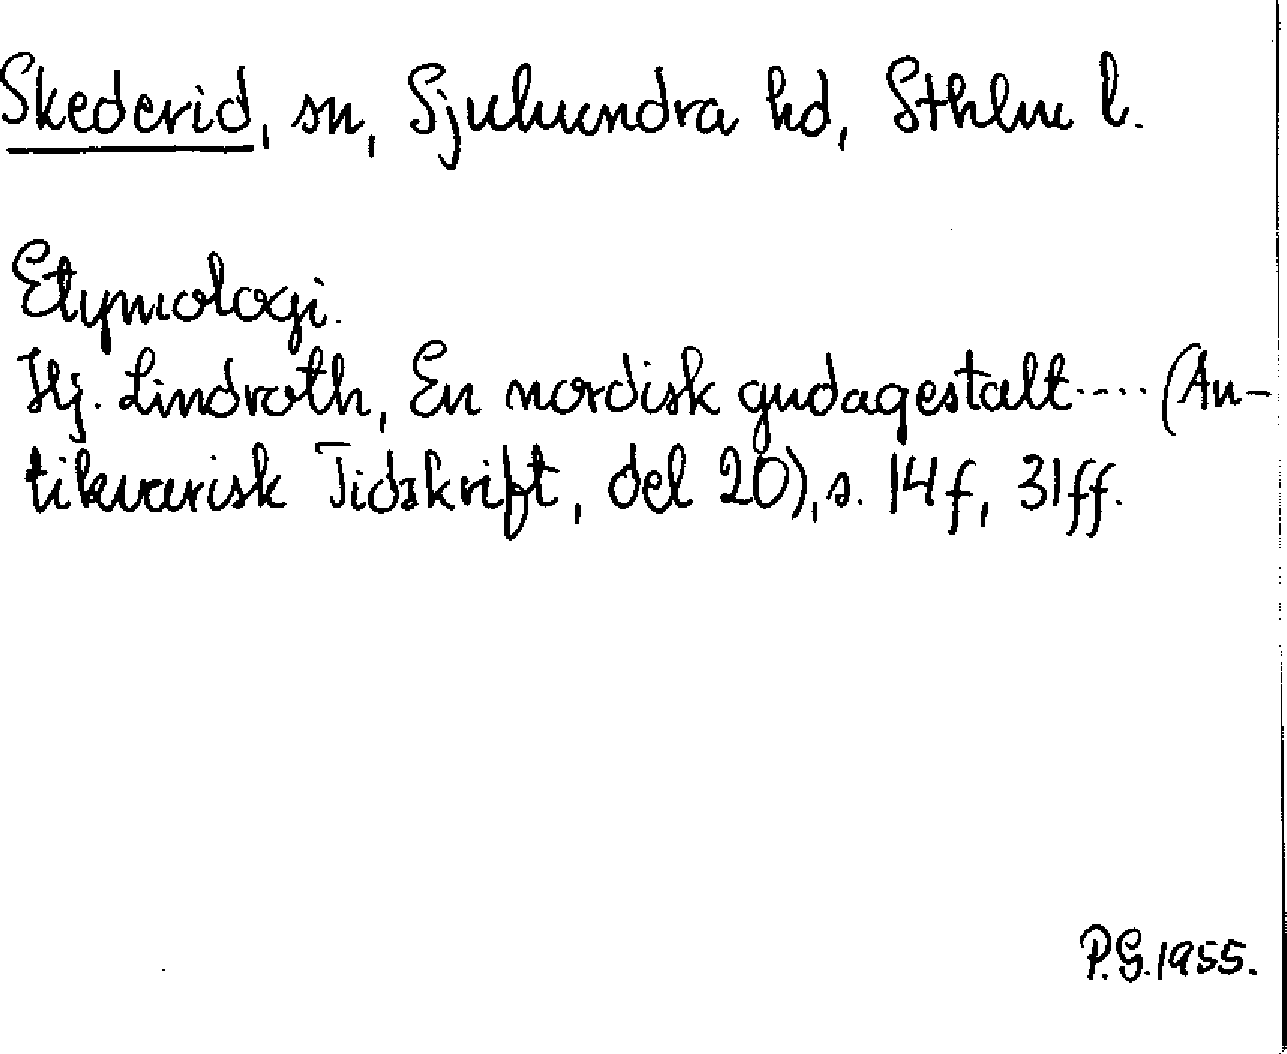 Skederid, sn, Sjuhundra hd, Sthlm l.
Etymologi.
Hj. Lindroth, En nordisk gudagestalt.... (An-
tikvarisk Tidskrift, del 20), s. 14f, 31ff.
P.G. 1955.